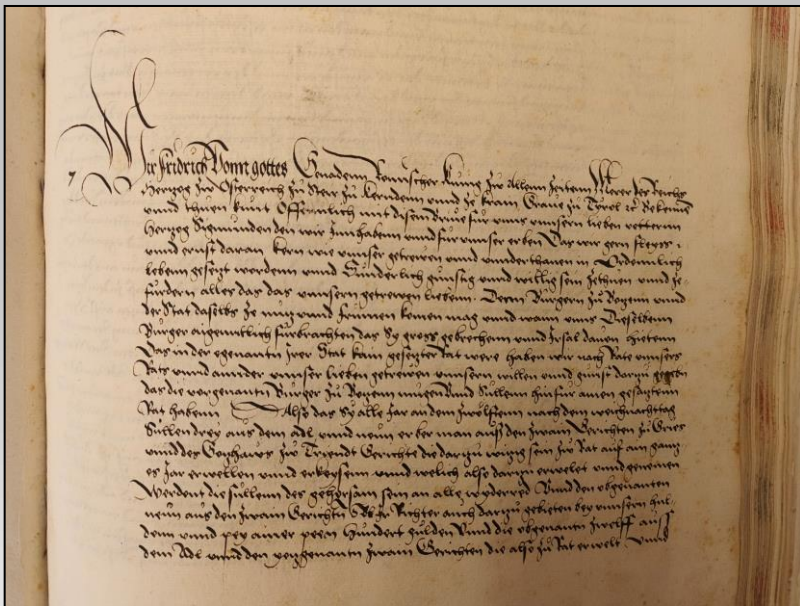 Wir Fridrich Vonn gottes Genadenn Romischer kunig zw Allenn zeitenn Merer des Reichs
Hertzog zw Österreich zu Steir zu kerndenn vnnd ze krain Graue zu Tyrol etc Bekennen
vnnd thuen kunt Offennlich mit disem brieue fur vnns vnnsern lieben vetternn
Hertzog Sigmunden den wir Innhabenn vnnd fur vnnser erben Das wir gern fleyss
vnnd ernst daran kern wie vnnser getrewen vnnd vnnderthanen in Ordennlich
lebenn gesetzt werdenn vnnd Sunderlich gunstig vnnd willig sein zethuen vnnd ze
furdern alles das das vnnsern getrewen liebenn Denn Burgern zu Botzenn vnnd
der Stat daselbs ze nutz vnnd frummen komen mag vnnd wann vnns Dieselbenn
Burger aigenntlich furbrachten das Sy gross gebrechenn vnnd Irsal dauon hietenn
Das in der egenantn Irer Stat kain gesetzter Rat were haben wir nach Rate vnnsers
Rats vnnd annder vnnser lieben getrewen vnnsern willen vnnd gunst dartzu gegeben
das die vorgenantn Burger zu Botzenn mugen vnnd Sullenn hinfur ainen gesatztenn
Rat habenn Also das Sy alle Jar an dem zwelfftenn nach dem weichnachttag
Sullen drey aus dem adl vnnd neun erber man auss den zwain Gerichten zu Gries
vnnd des Gotzhaws zw Triendt Gerichte die dartzu witzig sein zw Rat auf ain gantz
es Jar erwellen vnnd erkyesenn vnnd welich also dartzu erwelet vnnd genomen
Werdent die sullenn des gehorsam sein an alle wyderred Vnnd den obgenanten
neun aus den zwain Gerichtn Ob zu Richter auch dartzu gebieten bey vnnsern hul-
denn vnnd pey ainer peen Hundert gulden Vnnd die obgenantn zwelff auss
dem Adl vnnd den yetzgenantn zwain Gerichten die also zu Rat erwelt vnnd